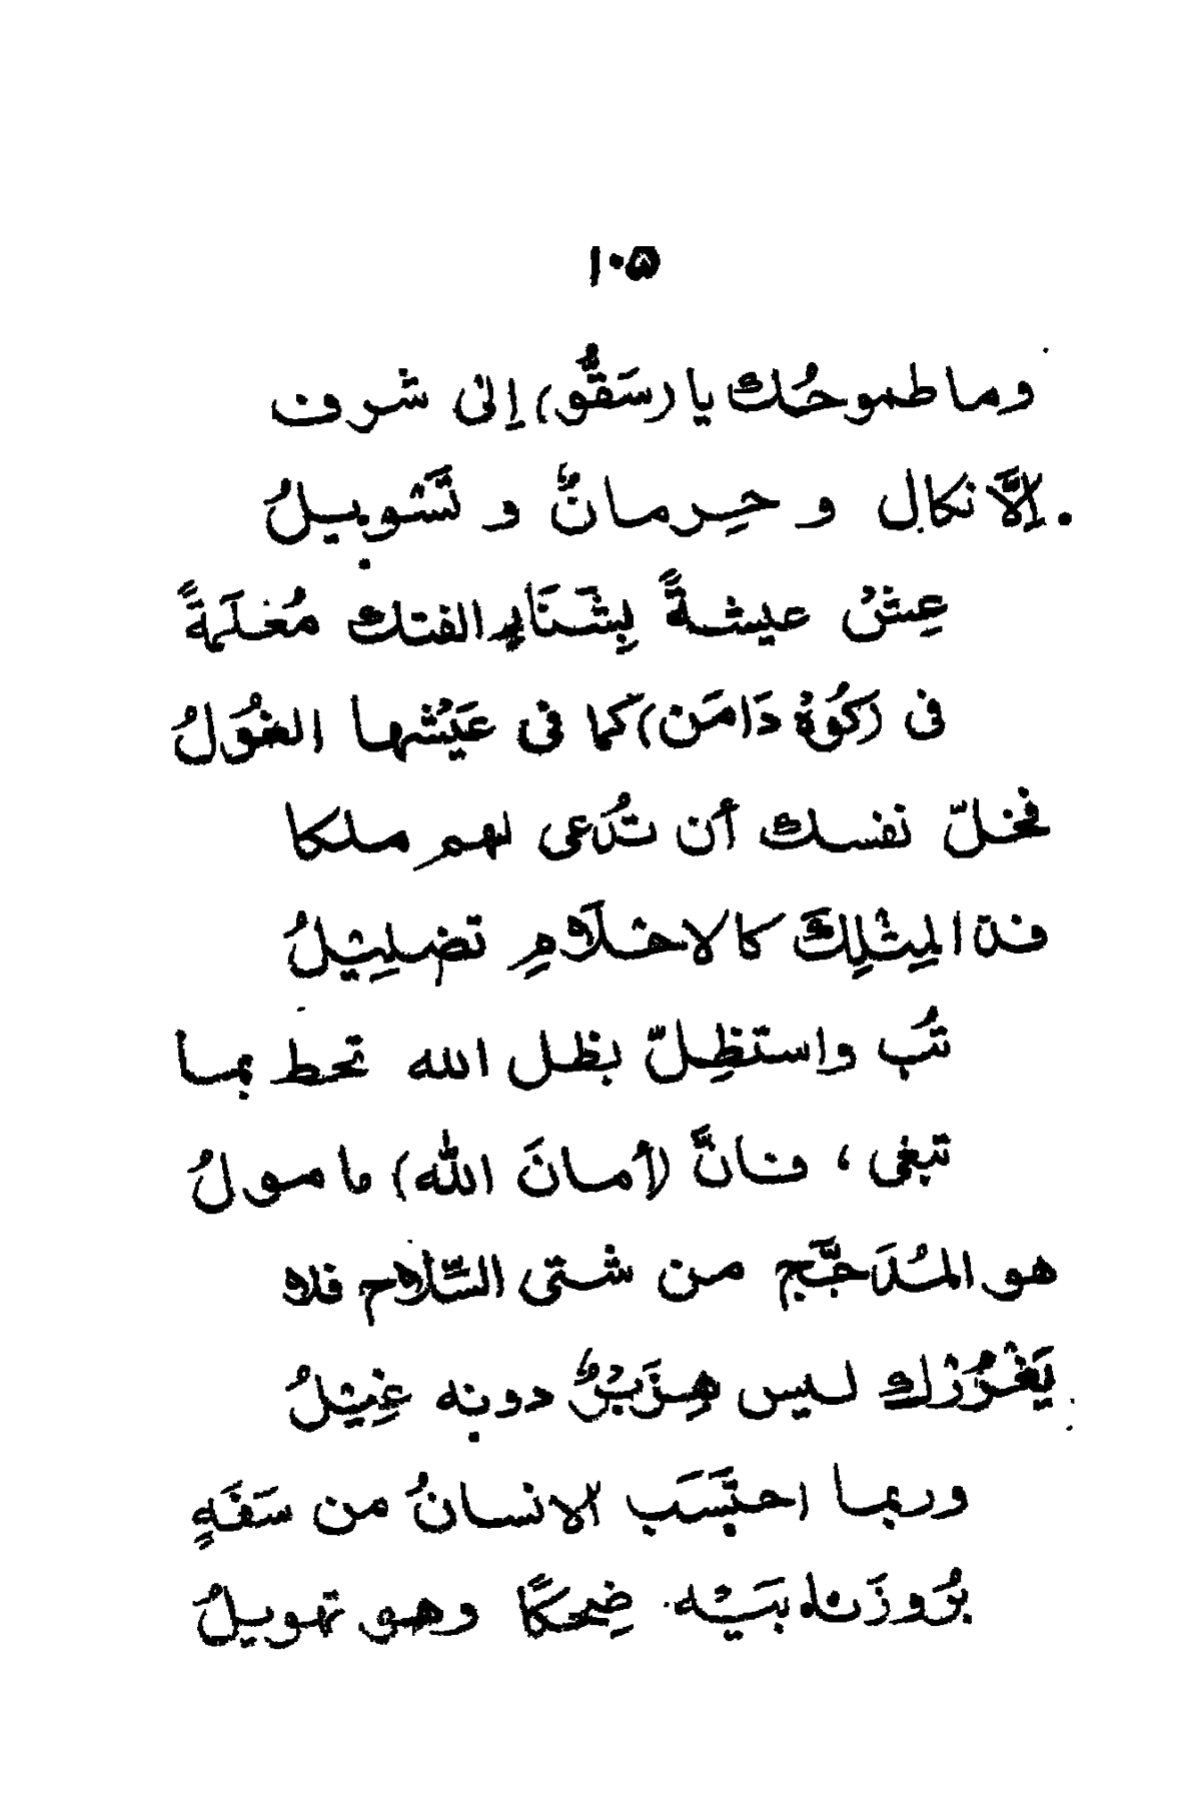 ١٠۵
وما طموحُك يا (سَقُّو) إلى شرف
إلَّا نكال و حِرمانٌ و تَسْويلُ
عِشْ عيشةً بِشَنَارِ الفتك مُغلَمَةً
فى (كُوْهْ دَامَن) كما فى عَيْشها الغُوَلُ
فخلّ نفسك أن تُدعى لهم ملكا
فذا لمِثْلِكَ كالاحْلَامِ تضلِيْلُ
تُب واستظِلّ بظل الله تحط بما
تبغى ، فانَّ (أمانَ الله) مامولُ
هو المُدَجَّج من شتى السِّلاح فلا
يَغْرُرْك ليس هِزَبْرٌ دونه غِيْلُ
وربما احتَسَب الانسانُ من سَفَهٍ
بُروزَ نابَيْه ضِحكًا وهو تهويلُ